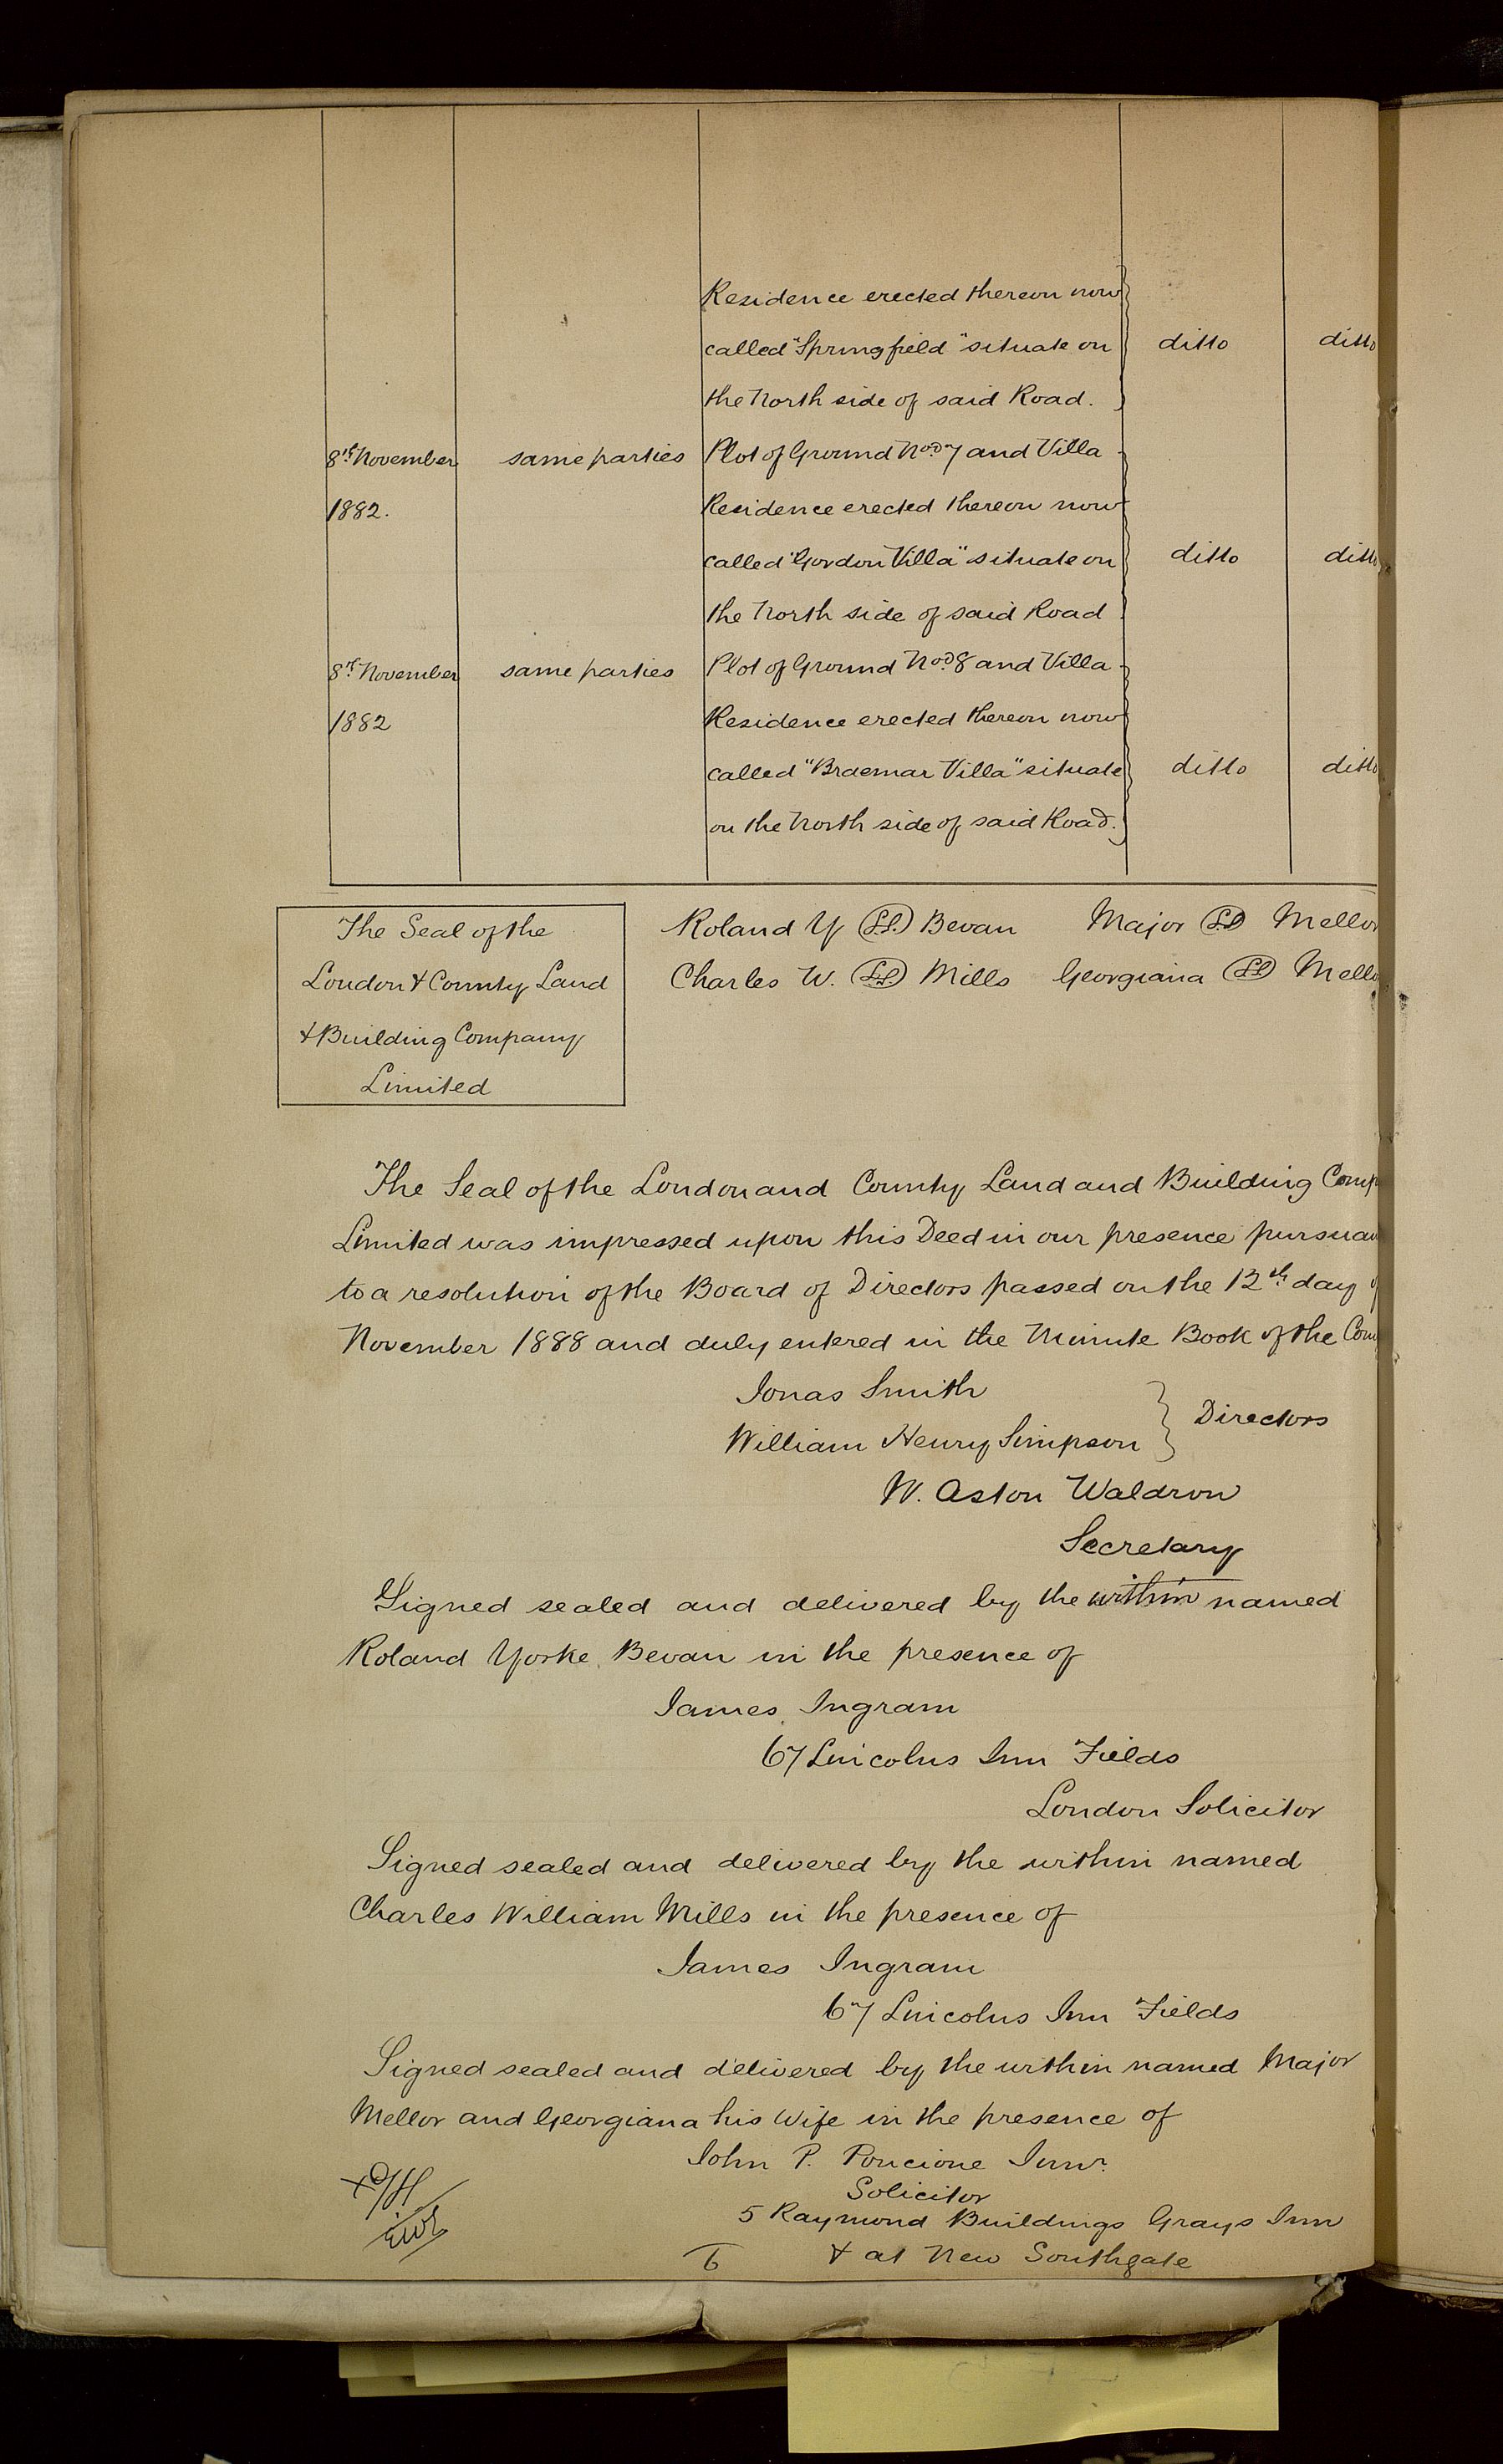 Residence erected thereon now
called "Springfield" situate on ditto ditto
the North side of said Road.
8th November same parties Plot of Ground No. 7 and Villa
1882. Residence erected thereon now
called "Gordon Villa" situate on ditto ditto
the North side of said Road
8th November same parties Plot of Ground No. 8 and Villa
1882 Residence erected thereon now
called "Braemar Villa" situate ditto ditto
on the North side of said Road.
The Seal of the
London & County Land
& Building Company
Limited
Roland Y L.S. Bevan Major L.S. Mellor
Charles W. L.S. Mills Georgiana L.S. Mello
The Seal of the London and County Land and Building Comp
Limited was impressed upon this Deed in our presence pursuan
to a resolution of the Board of Directors passed on the 12th day o
November 1888 and duly entered in the Minute Book of the Com
Jonas Smith
William Henry Simpson } Directors
W. Aston Waldron
Secretary
Signed sealed and delivered by the within named
Roland Yorke Bevan in the presence of
James Ingram
67 Lincolns Inn Fields
London Solicitor
Signed sealed and delivered by the within named
Charles William Mills in the presence of
James Ingram
67 Lincolns Inn Fields
Signed sealed and delivered by the within named Major
Mellor and Georgiana his Wife in the presence of
John P. Poncione Junr.
Solicitor
5 Raymond Buildings Grays Inn
& at New Southgate
6